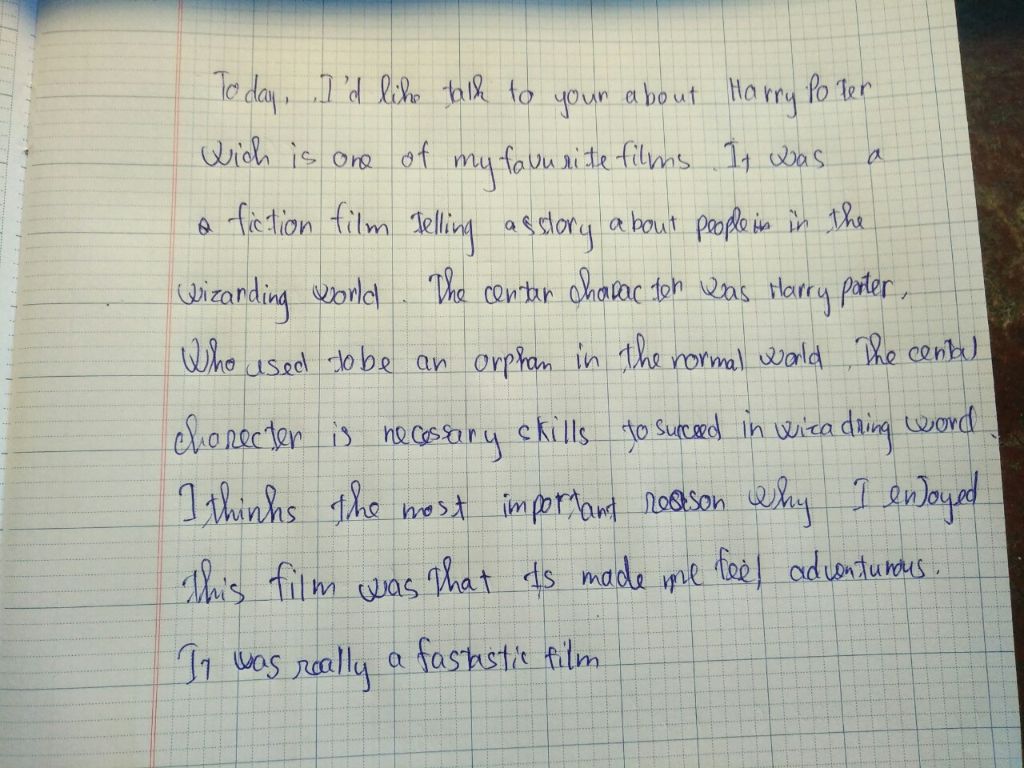 Today, I'd like talk to your about Harry Poter
wich is one of my favurite films. It was a
a fiction film telling asstory about people in in the
wizarding world. The centar character was Harry poter,
Who used to be an orphan in the normal world. The central
charecter is necessary skills to succed in wizadring word.
I thinks the most important reason why I enjoyed
this film was that ts made me feel adventurous.
It was really a fastastic film